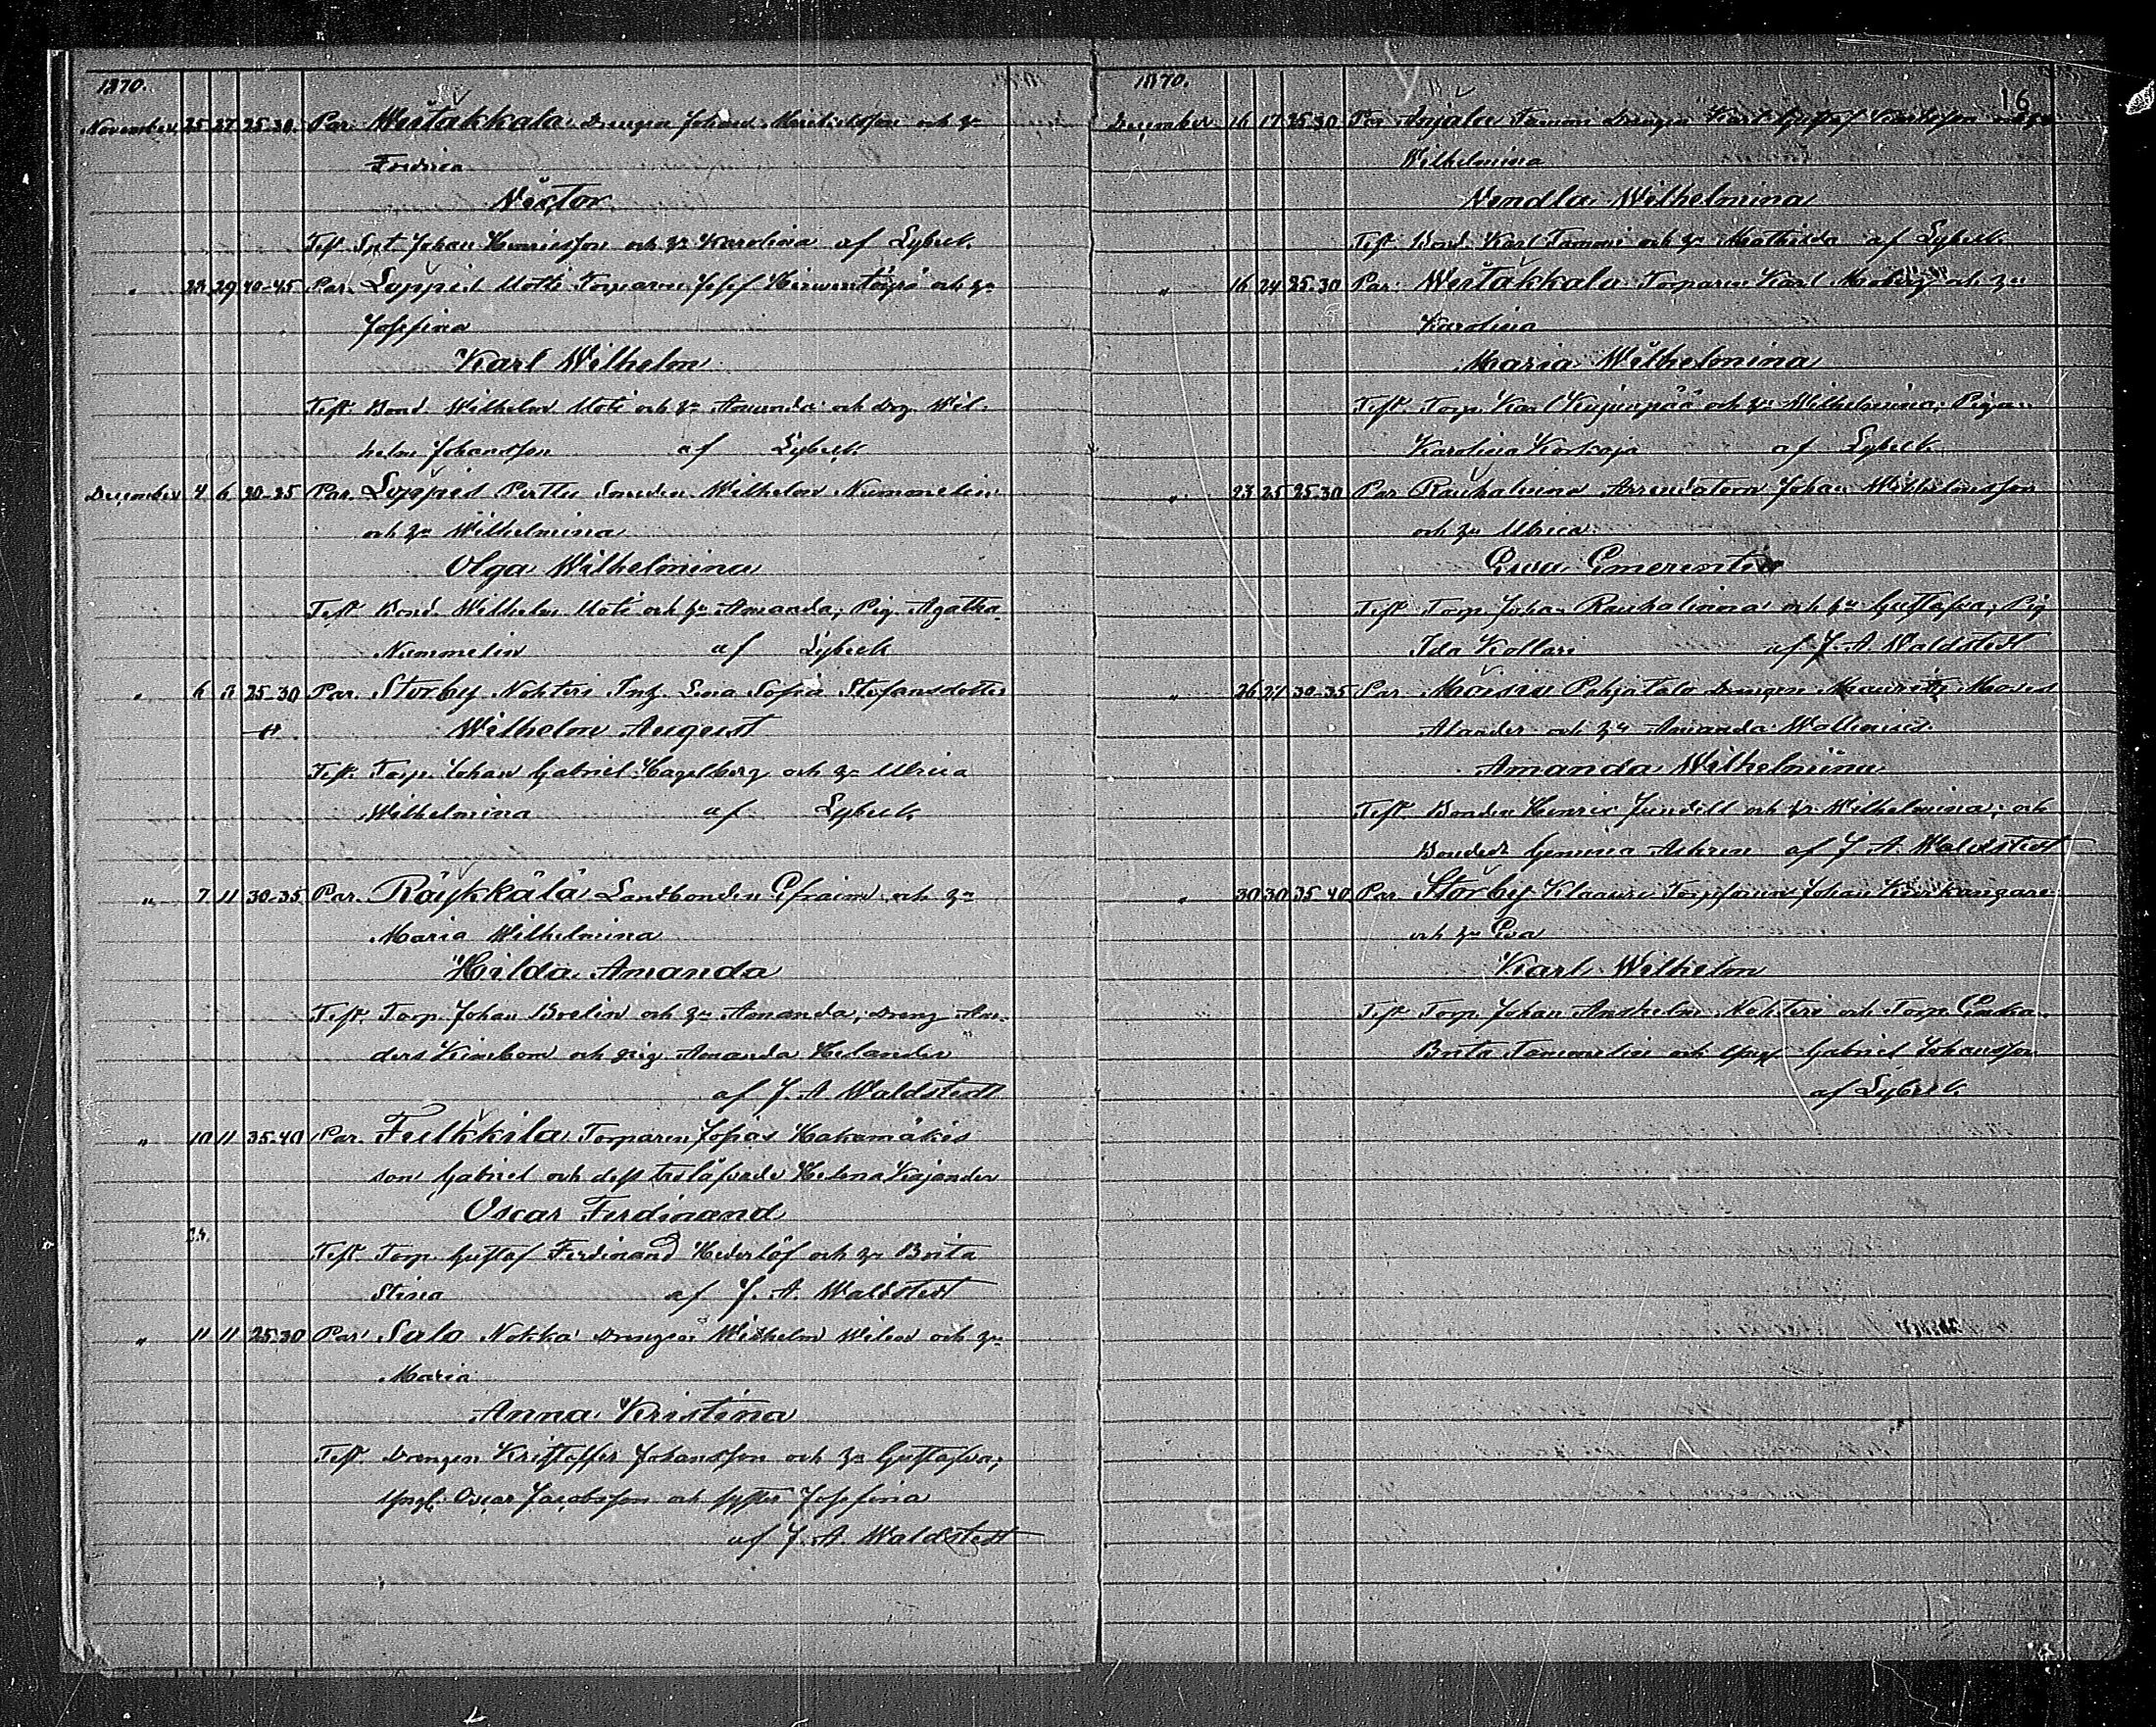 1870.
November 25 27 25-30. Par. Westakkala Drengen Johan och h:u
Fredrica
Nestor
Test. Johan Henricsson och h:u Karolina af Lybeck.
" 28 29 40-45 Par. Loppis Uotti Torparen Josef och h:u
Josefina
Karl Wilhelm
Test. Bond. Wilhelm Uoti och h:u Amanda och drg. Wil-
helm Johansson af Lybeck
December 4 6 20-25 Par. Loppis Perttu Smeden Wilhelm Nummelin
och h:u Wilhelmina
Olga Wilhelmina
Test. Bond. Wilhelm Uoti och h:u Amanda; Pig. Agatha
Nummelin af Lybeck
" 6 8 25-30 Par. Storby Nohteri Inh. Sofia Stefansdotter
Wilhelm August
Test. Torp. Johan Gabriel Hagelberg och h:u Ulrica
Wilhelmina af Lybeck
" 7 11 30-35 Par. Räykkälä Landbonden Efraim och h:u
Maria Wilhelmina
Hilda Amanda
Test. Torp. Johan Boelin och h:u Amanda; Dreng An-
ders och pig. Amanda Helander
af J. A. Waldstedt
" 10 11 35-40 Par. Fulkkila Torparen Josias Hakamäkis
son Gabriel och dess trolåfvade Helena Kajander
Oscar Ferdinand
Test. Torp. Gustaf Ferdinand Hederlöf och h:u Brita
Stina af J. A. Waldstedt
" 11 11 25-30 Par. Salo Nokka Drengen Wilhelm och h:u
Maria
Anna Kristina
Test. Drengen Kristoffer Johansson och h:u Gustafva;
Yngl. Oscar Jacobsson och syster Josefina
af J. A. Waldstedt
1870.
16
December 16 17 25-30 Par. Tammi Drengen Karl Gustaf
Wilhelmina
Vendla Wilhelmina
Test. Bond. Karl Tammi och h:u Mathilda af Lybeck
" 16 24 25-30 Par. Westakkala Torparen Karl Moberg och h:u
Karolina
Maria Wilhelmina
Test. Torp. Karl Kujanpää och h:u Wilhelmina; Piga
Karolina Korkoja af Lybeck
" 23 25 25-30 Par. Rauhalinna Arrendatorn Johan Wilhelmsson
och h:u Ulrica
Ewa Emerentia
Test. Torp. Johan Rauhalinna och h:u Gustafva; Pig
Ida Kollari af J. A. Waldstedt
" 26 27 30-35 Par. Maisiu Pohjatalo Drengen Mauritz Moses
Alander och h:u Amanda
Amanda Wilhelmina
Test. Bonden Henric och h:u Wilhelmina; och
af J. A. Waldstedt
" 30 30 35-40 Par. Storby Klaavu Torparen Johan
och h:u Eva
Karl Wilhelm
Test. Torp. Johan Anshelm Nohteri och Torp. Enka
Brita Tammelin och Yngl. Gabriel Johansson
af Lybeck.